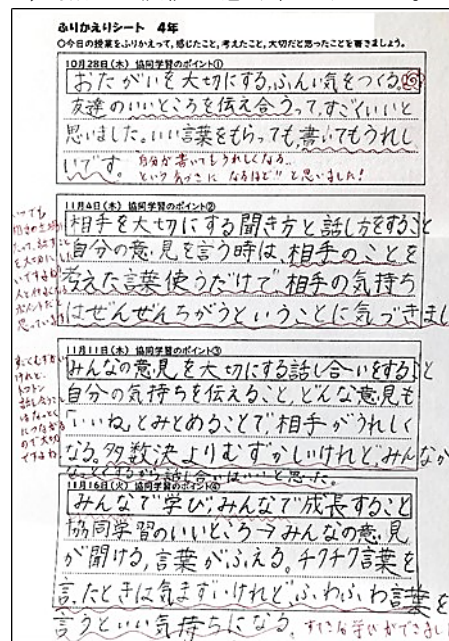 ふりかえりシート 4年
○今日の授業をふりかえって,感じたこと,考えたこと,大切だと思ったことを書きましょう。
10月28日(木) 協同学習のポイント①
おたがいを大切にする,ふんい気をつくる。
友達のいいところを伝え合うって,すごくいいと
思いました。いい言葉をもらっても,書いてもうれし
いです。
自分が書いてもうれしくなる…
という気づきに なるほど!!と思いました!
11月4日(木) 協同学習のポイント②
相手を大切にする聞き方と話し方をすること
自分の意見を言う時は,相手のことを
考えた言葉使うだけで,相手の気持ち
はぜんぜんちがうということに気づきまし
いつでも
11月11日(木) 協同学習のポイント③
みんなの意見を大切にする話し合いをすること
自分の気持ちを伝えること,どんな意見も
「いいね」とみとめることで相手がうれしく
なる。多数決よりむずかしいけれど,みんなが
なっとくするから話し合いはいいと思った。
11月16日(火) 協同学習のポイント④
みんなで学び,みんなで成長すること
協同学習のいいところ→みんなの意見
が聞ける,言葉がふえる。チクチク言葉を
言ったときは気まずいけれど,ふわふわ言葉を
言うといい気持ちになる。